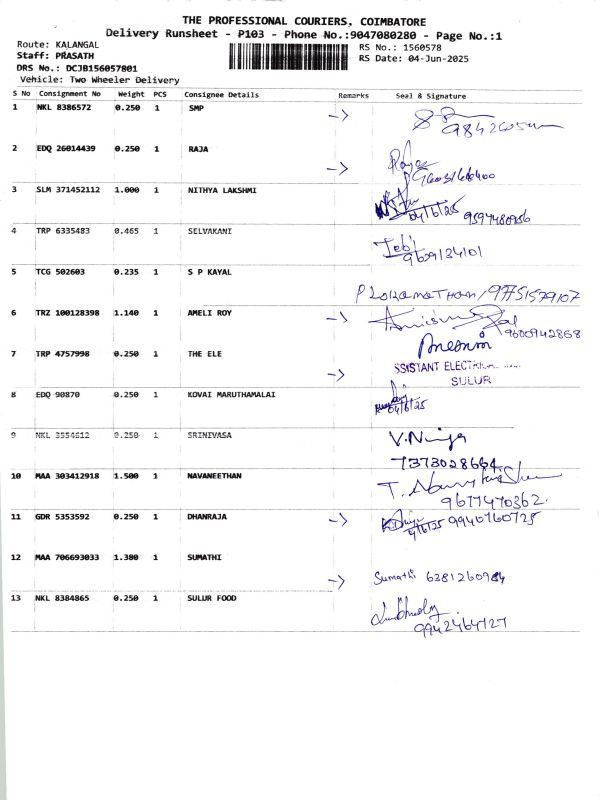 THE PROFESSIONAL COURIERS, COIMBATORE
Delivery Runsheet - P103 - Phone No.:9047080280 - Page No.:1
Route: KALANGAL
RS No.: 1560578
Staff: PRASATH
RS Date: 04-Jun-2025
DRS No.: DCJB156057801
Vehicle: Two Wheeler Delivery
S No Consignment No Weight PCS Consignee Details Remarks Seal & Signature
1 NKL 8386572 0.250 1 SMP ->
2 EDQ 26014439 0.250 1 RAJA ->
3 SLM 371452112 1.000 1 NITHYA LAKSHMI
04/6/25
4 TRP 6335483 0.465 1 SELVAKANI
9629134101
5 TCG 502603 0.235 1 S P KAYAL
P LOKANATHAN / 9751579107
6 TRZ 100128398 1.140 1 AMELI ROY ->
9600942868
7 TRP 4757998 0.250 1 THE ELE ->
SSISTANT
SULUR
8 EDQ 90870 0.250 1 KOVAI MARUTHAMALAI
04/6/25
9 NKL 3554612 0.250 1 SRINIVASA
7373028664
10 MAA 303412918 1.500 1 NAVANEETHAN
9677470362.
11 GDR 5353592 0.250 1 DHANRAJA ->
4/6/25 9940760725
12 MAA 706693033 1.380 1 SUMATHI -> Sumathi 6381260984
13 NKL 8384865 0.250 1 SULUR FOOD
9942464727